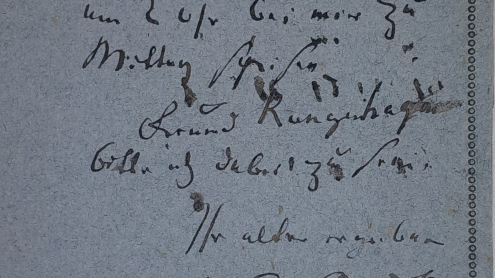 um 2 Uhr bei mir zu
Mittag speisen
Freund Rungenhagen
bitte ich dabei zu sein.
Ihr alter ergebener